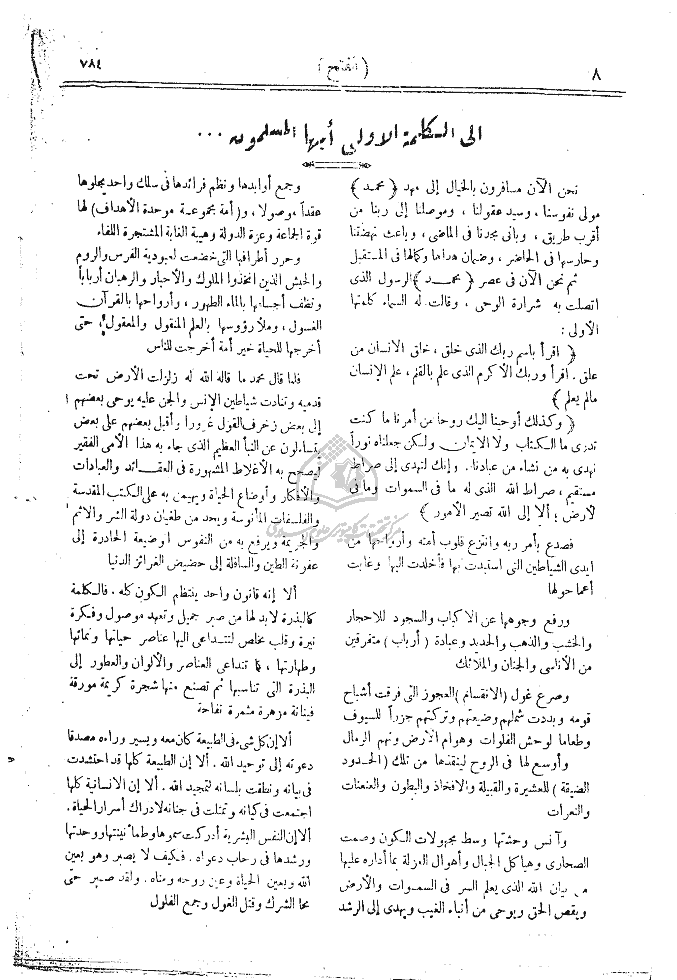 ٨
( الفتح )
٧٨٤
الى الكلمة الاولى أيها المسلمون ...
نحن الآن مسافرون بالخيال إلى مهد ( محمد )
مولى نفوسنا ، وسيد عقولنا ، وموصلنا إلى ربنا من
أقرب طريق ، وبانى مجدنا فى الماضى ، وباعث نهضتنا
وحارسها فى الحاضر ، وضمان هداها وكمالها فى المستقبل
ثم نحن الآن فى عصر ( محمد ) الرسول الذى
اتصلت به شرارة الوحى ، وقالت له السماء كلمتها
الأولى :
( اقرأ باسم ربك الذى خلق ، خلق الانسان من
علق . اقرأ وربك الأكرم الذى علم بالقلم ، علم الإنسان
مالم يعلم )
( وكذلك أوحينا اليك روحا من أمرنا ما كنت
تدرى ما الكتاب ولا الايمان ولكن جعلناه نوراً
نهدى به من نشاء من عبادنا . وإنك لتهدى إلى صراط
مستقيم ، صراط الله الذى له ما فى السموات وما فى
لأرض ؛ ألا إلى الله تصير الأمور )
فصدع بأمر ربه وانتزع قلوب أمته وأرواحها من
ايدى الشياطين التى استبدت بها فأخلدت اليها وغابت
أعما حولها
ورفع وجوهها عن الاكباب والسجود للاحجار
والخشب والذهب والحديد وعبادة ( أرباب ) متفرقين
من الأناسى والجنان والملائك
وصرع غول ( الانقسام ) العجوز التى فرقت أشباح
قومه وبددت شملهم وضيعتهم وتركتهم جزراً للسيوف
وطعاما لوحش الفلوات وهوام الأرض ونهم الرمال
وأوسع لها فى الروح لينقذها من تلك ( الحدود
الضيقة ) للعشيرة والقبيلة والافخاذ والبطون والعنعنات
والنعرات
وآنس وحشتها وسط مجهولات الكون وصمت
الصحارى وهياكل الجبال وأهوال العزلة بما أداره عليها
من بيان الله الذى يعلم السر فى السموات والأرض
ويقص الحق ويوحى من أنباء الغيب ويهدى إلى الرشد
وجمع أوابدها ونظم فرائدها فى سلك واحد يجلوها
عقداً موصولا ، و( أمة مجموعة موحدة الأهداف ) لها
قوة الجماعة وعزة الدولة وهيبة الغابة المشتجرة اللفاء
وحرر أطرافها التى خضعت لعبودية الفرس والروم
والحبش الذين اتخذوا الملوك والأحبار والرهبان أرباباً
ونظف أجسانها بالماء الطهور ، وأرواحها بالقرآن
الغسول ، وملأ رؤوسها بالعلم المنقول والمعقول ، حتى
أخرجها للحياة خير أمة أخرجت للناس
فلما قال محمد ما قاله الله له زلزلت الأرض تحت
قدميه وتنادت شياطين الإنس والجن عليه يوحى بعضهم
إلى بعض زخرف القول غرورا وأقبل بعضهم على بعض
يتساءلون عن النبأ العظيم الذى جاء به هذا الأمى الفقير
ليصحح به الأغلاط المشهورة فى العقائد والعبادات
والأفكار وأوضاع الحياة ويهيمن به على الكتب المقدسة
والفلسفات المأنوسة ويحد من طغيان دولة الشر والاثم
والجريمة ويرفع به من النفوس الوضيعة الحادرة إلى
عفونة الطين والسافلة إلى حضيض الغرائز الدنيا
ألا إنه قانون واحد ينتظم الكون كله . فالكلمة
كالبذرة لابد لها من صبر جميل وتعهد موصول وفكرة
نيرة وقلب مخلص لتتداعى اليها عناصر حياتها ونمائها
وطهارتها ، كما تتداعى العناصر والألوان والعطور إلى
البذرة التى تناسبها ثم تصنع منها شجرة كريمة مورقة
فينانة مزهرة مثمرة نفاحة
ألا إن كل شىء فى الطبيعة كان معه ويسير وراءه مصدقا
دعوته إلى توحيد الله . ألا إن الطبيعة كلها قد احتشدت
فى بيانه ونطقت بلسانه لتمجيد الله . ألا إن الانسانية كلها
اجتمعت فى كيانه وتمثلت فى جنانه لادراك أسرار الحياة .
ألا إن النفس البشرية أدركت سموها وطمأنينتها ووحدتها
ورشدها فى رحاب دعواه . فكيف لا يصبر وهو بعين
الله وبعين الحياة وعين روحه ومناه . ولقد صبر حتى
محا الشرك وقتل الغول وجمع الفلول